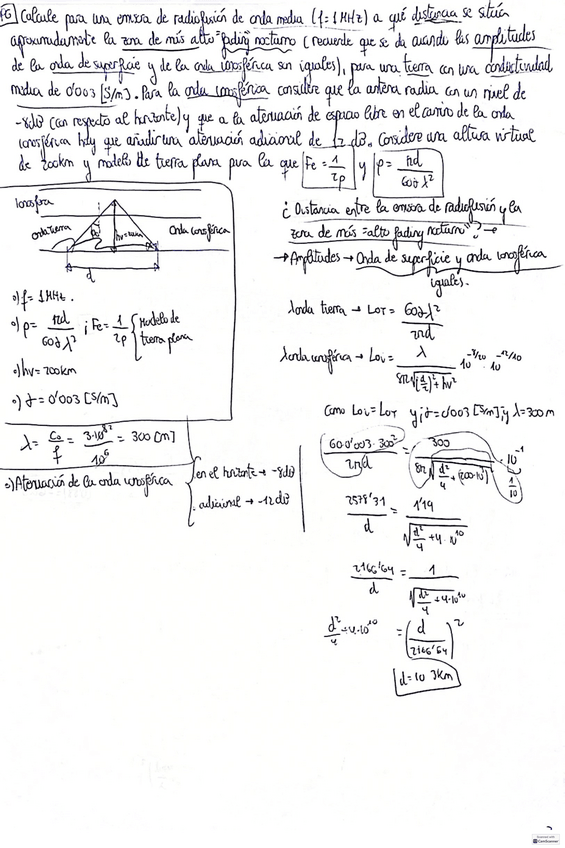 P6 Calcule para una emisora de radiofusión de onda media (f=1MHz) a qué distancia se sitúa
aproximadamente la zona de más alto "fading" nocturno (recuerde que se da cuando las amplitudes
de la onda de superficie y de la onda ionosférica son iguales), para una tierra con una conductividad
media de 0'003 [S/m]. Para la onda ionosférica considere que la antena radia con un nivel de
-8dB (con respecto al horizonte) y que a la atenuación de espacio libre en el camino de la onda
ionosférica hay que añadir una atenuación adicional de 12 dB. Considere una altura virtual
de 200km y modelo de tierra plana para la que Fe = 1/2p y p = πd/60σλ²
Ionosfera
Onda tierra
Onda ionosférica
d
•) f = 1MHz.
•) p = πd/60σλ² ; Fe = 1/2p { Modelo de
tierra plana
•) hv = 200km
•) σ = 0'003 [S/m]
λ = c₀/f = 3·10⁸/10⁶ = 300 [m]
•) Atenuación de la onda ionosférica
en el horizonte → -8dB
adicional → -12dB
¿Distancia entre la emisora de radiofusión y la
zona de más "alto fading nocturno"? →
→ Amplitudes → Onda de superficie y onda ionosférica
iguales.
λonda tierra → LOT = 60σλ²/2πd
λonda ionosférica → LOi = λ/8π√((d/2)²+hv²) 10^-8/20 · 10^-12/20
Como LOi = LOT y σ = 0'003 [S/m] y λ = 300m
60·0'003·300²/2πd = 300/8π√(d²/4+(200·10³)²) · 10⁻¹
1/10
2578'31/d = 1'19/√(d²/4+4·10¹⁰)
2166'64/d = 1/√(d²/4+4·10¹⁰)
d²/4+4·10¹⁰ = (d/2166'64)²
d = 103km
CamScanner